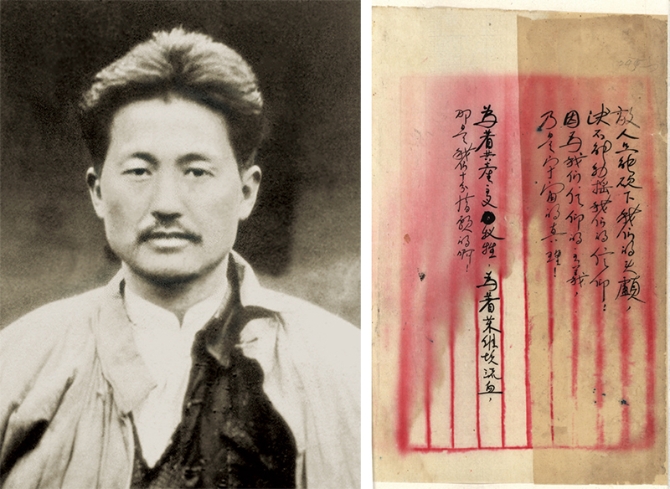 敌人只能砍下我们的头颅，
决不能动摇我们的信仰！
因为我们信仰的主义，
乃是宇宙的真理！
為着共產主义牺牲，為着苏维埃流血，
那是我们十分情願的啊！